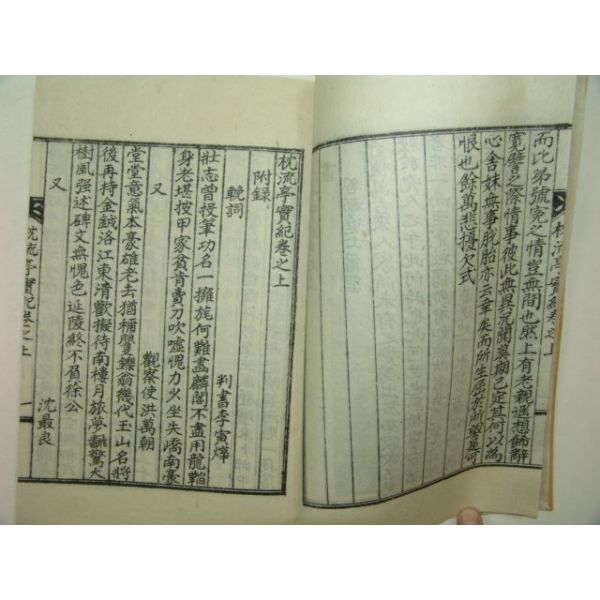 而比弟號冤之情豈無間也然上有老親遙想飾辭
寬譬之際情事彼此無異况關莫期已定其何以為
心舍妹無事脫胎亦云幸矣而所生屈於所望是可
恨也餘萬悲擾欠式
枕流亭實紀卷之上
枕流亭實紀卷之上
附錄
輓詞
判書李寅燁
壯志曾投筆功名一擁旄何難畵麟閣不盡用龍韜
身老堪披甲家貧肯賣刀吹噓愧力火坐失嶠南豪
又 觀察使洪萬朝
堂堂意氣本豪雄老去猶稱矍鑠翁幾代玉山名將
後再持金鉞洛江東清歡擬待南樓月旅夢飜驚大
樹風强述碑文無愧色延陵終不負徐公
又 沈最良
枕流亭實紀卷之上 一